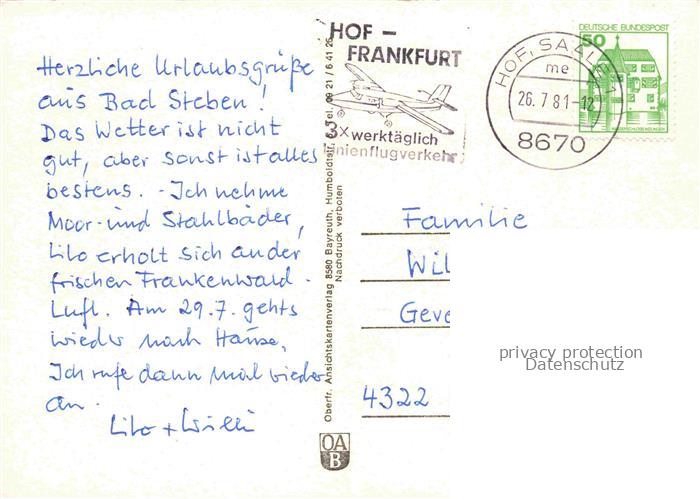 Herzliche Urlaubsgrüße
aus Bad Steben!
Das Wetter ist nicht
gut, aber sonst ist alles
bestens. - Ich nehme
Moor- und Stahlbäder,
Lilo erholt sich an der
frischen Frankenwald-
Luft. Am 29.7. gehts
wieder nach Hause.
Ich rufe dann mal wieder
an.
Lilo + Willi
Oberfr. Ansichtskartenverlag 8580 Bayreuth, Humboldtstr. Tel. 09 21 / 6 41 26
Nachdruck verboten
OA
B
HOF –
FRANKFURT
3x werktäglich
Linienflugverkehr
HOF, SAALE 1
me
26.7.81-12
8670
DEUTSCHE BUNDESPOST
50
Familie
Wil
Geve
4322
privacy protection
Datenschutz